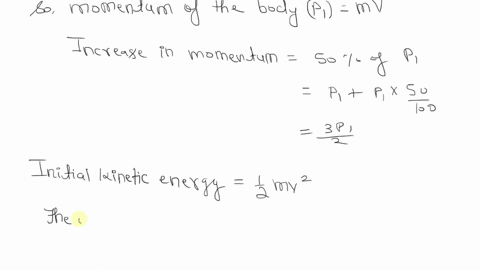 So, momentum of the body (P₁) = mV
Increase in momentum = 50% of P₁
= P₁ + P₁ × 50/100
= 3P₁/2
Initial kinetic energy = 1/2 mv²
The